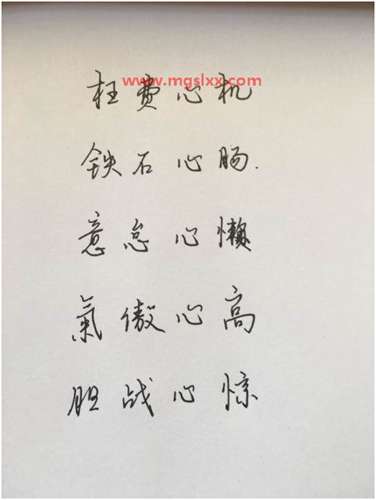 www.mgslxx.com
枉费心机
铁石心肠.
意怠心懒
氣傲心高
胆战心惊